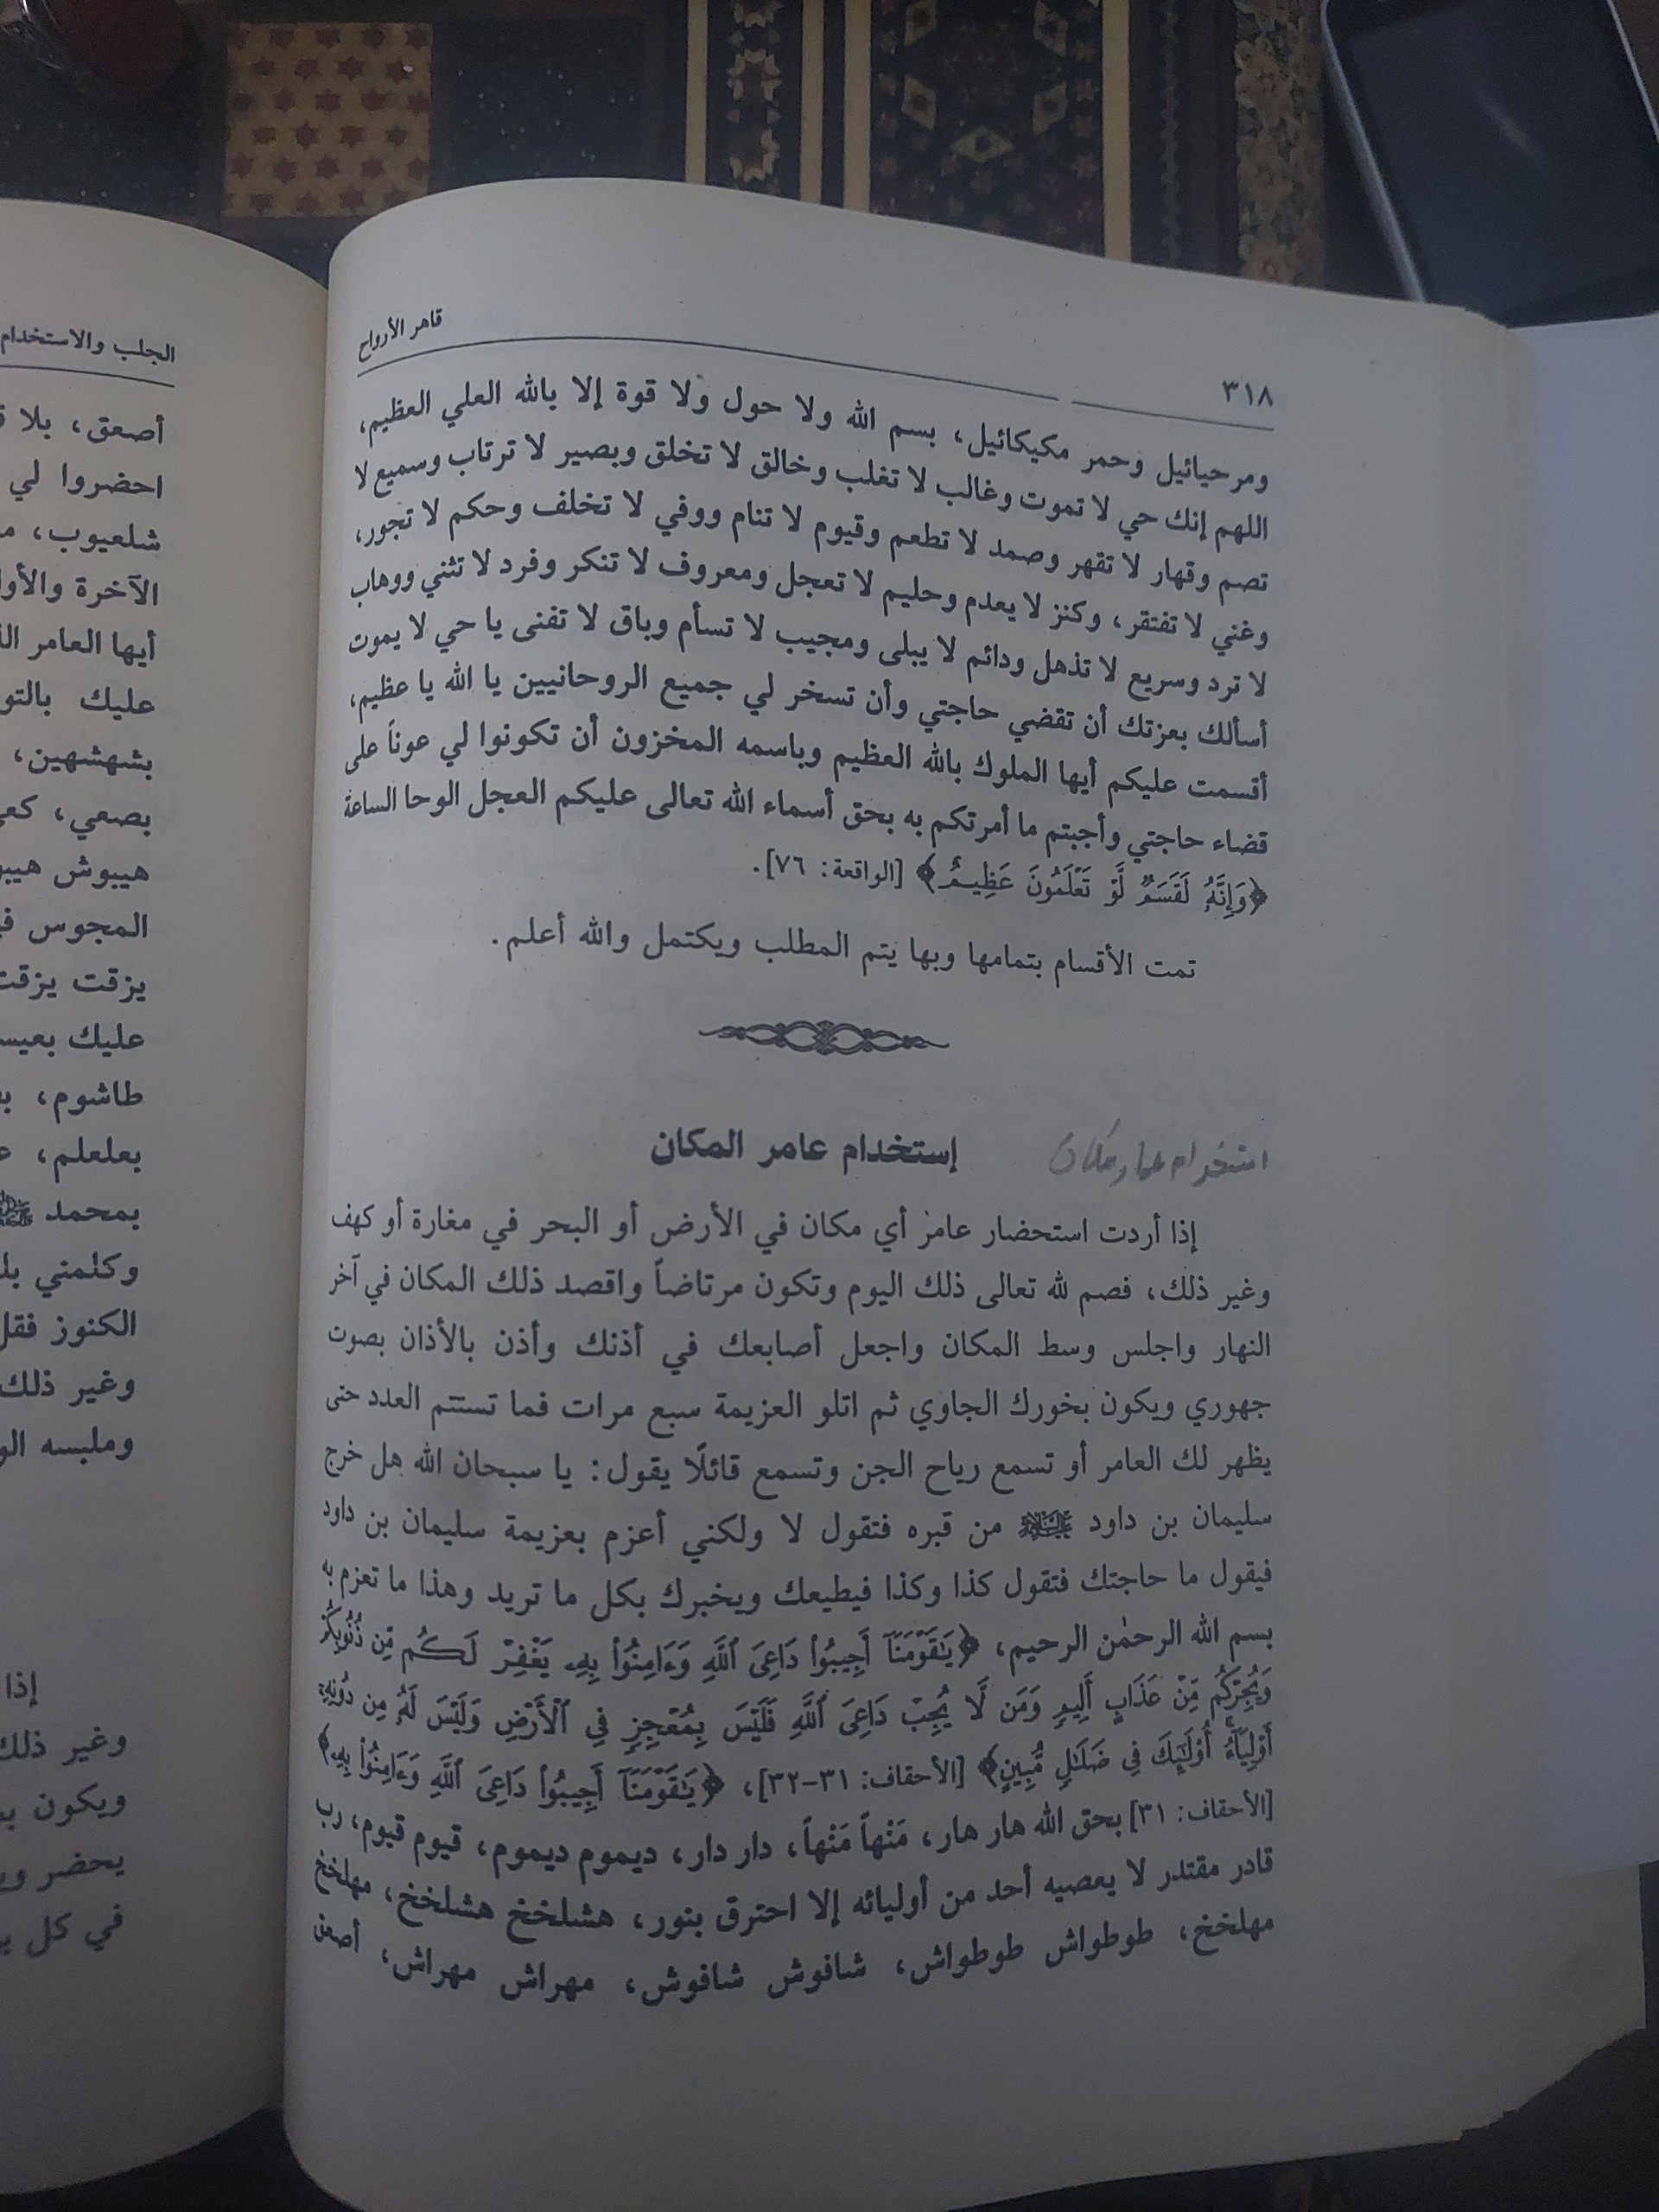 ٣١٨
قاهر الأرواح
ومرحيائيل وحمر مكيكائيل، بسم الله ولا حول ولا قوة إلا بالله العلي العظيم،
اللهم إنك حي لا تموت وغالب لا تغلب وخالق لا تخلق وبصير لا ترتاب وسميع لا
تصم وقهار لا تقهر وصمد لا تطعم وقيوم لا تنام ووفي لا تخلف وحكم لا تجور،
وغني لا تفتقر، وكنز لا يعدم وحليم لا تعجل ومعروف لا تنكر وفرد لا تثني ووهاب
لا ترد وسريع لا تذهل ودائم لا يبلى ومجيب لا تسأم وباق لا تفنى يا حي لا يموت
أسألك بعزتك أن تقضي حاجتي وأن تسخر لي جميع الروحانيين يا الله يا عظيم،
أقسمت عليكم أيها الملوك بالله العظيم وباسمه المخزون أن تكونوا لي عوناً على
قضاء حاجتي وأجبتم ما أمرتكم به بحق أسماء الله تعالى عليكم العجل الوحا الساعة
﴿وَإِنَّهُ لَقَسَمٌ لَّوْ تَعْلَمُونَ عَظِيمٌ﴾ [الواقعة: ٧٦].
تمت الأقسام بتمامها وبها يتم المطلب ويكتمل والله أعلم.
استخدام عمار مكان
إستخدام عامر المكان
إذا أردت استحضار عامر أي مكان في الأرض أو البحر في مغارة أو كهف
وغير ذلك، فصم لله تعالى ذلك اليوم وتكون مرتاضاً واقصد ذلك المكان في آخر
النهار واجلس وسط المكان واجعل أصابعك في أذنك وأذن بالأذان بصوت
جهوري ويكون بخورك الجاوي ثم اتلو العزيمة سبع مرات فما تستتم العدد حتى
يظهر لك العامر أو تسمع رياح الجن وتسمع قائلًا يقول: يا سبحان الله هل خرج
سليمان بن داود من قبره فتقول لا ولكني أعزم بعزيمة سليمان بن داود
فيقول ما حاجتك فتقول كذا وكذا فيطيعك ويخبرك بكل ما تريد وهذا ما تعزم به
بسم الله الرحمٰن الرحيم، ﴿يَٰقَوْمَنَآ أَجِيبُوا۟ دَاعِىَ ٱللَّهِ وَءَامِنُوا۟ بِهِۦ يَغْفِرْ لَكُم مِّن ذُنُوبِكُمْ
وَيُجِرْكُم مِّنْ عَذَابٍ أَلِيمٍ وَمَن لَّا يُجِبْ دَاعِىَ ٱللَّهِ فَلَيْسَ بِمُعْجِزٍ فِى ٱلْأَرْضِ وَلَيْسَ لَهُۥ مِن دُونِهِۦٓ
أَوْلِيَآءُ أُو۟لَٰٓئِكَ فِى ضَلَٰلٍ مُّبِينٍ﴾ [الأحقاف: ٣١-٣٢]، ﴿يَٰقَوْمَنَآ أَجِيبُوا۟ دَاعِىَ ٱللَّهِ وَءَامِنُوا۟ بِهِۦ﴾
[الأحقاف: ٣١] بحق الله هار هار، مَنْهاً مَنْهاً، دار دار، ديموم ديموم، قيوم قيوم، رب
قادر مقتدر لا يعصيه أحد من أوليائه إلا احترق بنور، هشلخخ هشلخخ، مهلخخ
مهلخخ، طوطواش طوطواش، شافوش شافوش، مهراش مهراش، أصعق
الجلب والاستخدام
أصعق، بلا
احضروا لي
شلعيوب،
الآخرة
أيها العامر
عليك
بشهشهين،
بصعي،
هيبوش
المجوس
يزقت
عليك
طاشوم،
بعلعلم،
بمحمد ﷺ
وكلمني
الكنوز
وغير ذلك
وملبسه
إذا
وغير ذلك
ويكون
يحضر
في كل